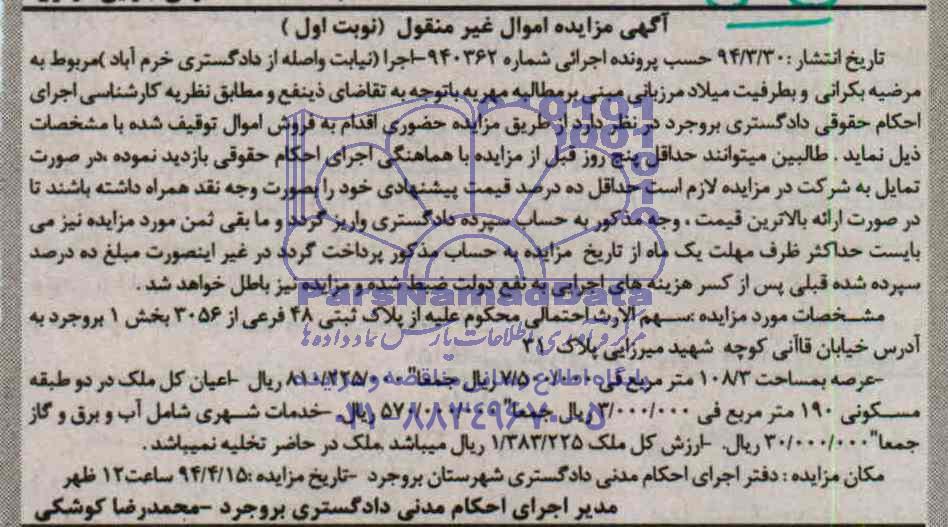 آگهی مزایده اموال غیر منقول (نوبت اول)
تاریخ انتشار :۹۴/۳/۳۰ حسب پرونده اجرائی شماره ۹۴۰۳۶۲-اجرا (نیابت واصله از دادگستری خرم آباد )مربوط به
مرضیه بکرانی و بطرفیت میلاد مرزبانی مبنی بر مطالبه مهریه باتوجه به تقاضای ذینفع و مطابق نظریه کارشناسی اجرای
احکام حقوقی دادگستری بروجرد در نظر دارد از طریق مزایده حضوری اقدام به فروش اموال توقیف شده با مشخصات
ذیل نماید . طالبین میتوانند حداقل پنج روز قبل از مزایده با هماهنگی اجرای احکام حقوقی بازدید نموده ،در صورت
تمایل به شرکت در مزایده لازم است حداقل ده درصد قیمت پیشنهادی خود را بصورت وجه نقد همراه داشته باشند تا
در صورت ارائه بالاترین قیمت ، وجه مذکور به حساب سپرده دادگستری واریز گردد و ما بقی ثمن مورد مزایده نیز می
بایست حداکثر ظرف مهلت یک ماه از تاریخ مزایده به حساب مذکور پرداخت گردد در غیر اینصورت مبلغ ده درصد
سپرده شده قبلی پس از کسر هزینه های اجرایی به نفع دولت ضبط شده و مزایده نیز باطل خواهد شد .
ParsNamadData
مشخصات مورد مزایده :سهم الارث احتمالی محکوم علیه از پلاک ثبتی ۴۸ فرعی از ۳۰۵۶ بخش ۱ بروجرد به
مرکز فرآوری اطلاعات پارس نماد داده ها
آدرس خیابان قاآنی کوچه شهید میرزایی پلاک ۳۱
-عرصه بمساحت ۱۰۸/۳ متر مربع فی ۷/۵۰۰/۰۰۰ ریال جمعا" ریال -اعیان کل ملک در دو طبقه
پایگاه اطلاع رسانی مناقصه و مزایده
مسکونی ۱۹۰ متر مربع فی ۳/۰۰۰/۰۰۰ ریال جمعا" ۵۷۰/۰۰۰/۰۰۰ ریال. -خدمات شهری شامل آب و برق و گاز
۰۲۱-۸۸۳۴۹۶۷۰-۵
جمعا" ۳۰/۰۰۰/۰۰۰ ریال. -ارزش کل ملک ۱/۳۸۳/۲۲۵ ریال میباشد .ملک در حاضر تخلیه نمیباشد .
مکان مزایده : دفتر اجرای احکام مدنی دادگستری شهرستان بروجرد -تاریخ مزایده :۹۴/۴/۱۵ ساعت ۱۲ ظهر
مدیر اجرای احکام مدنی دادگستری بروجرد -محمدرضا کوشکی